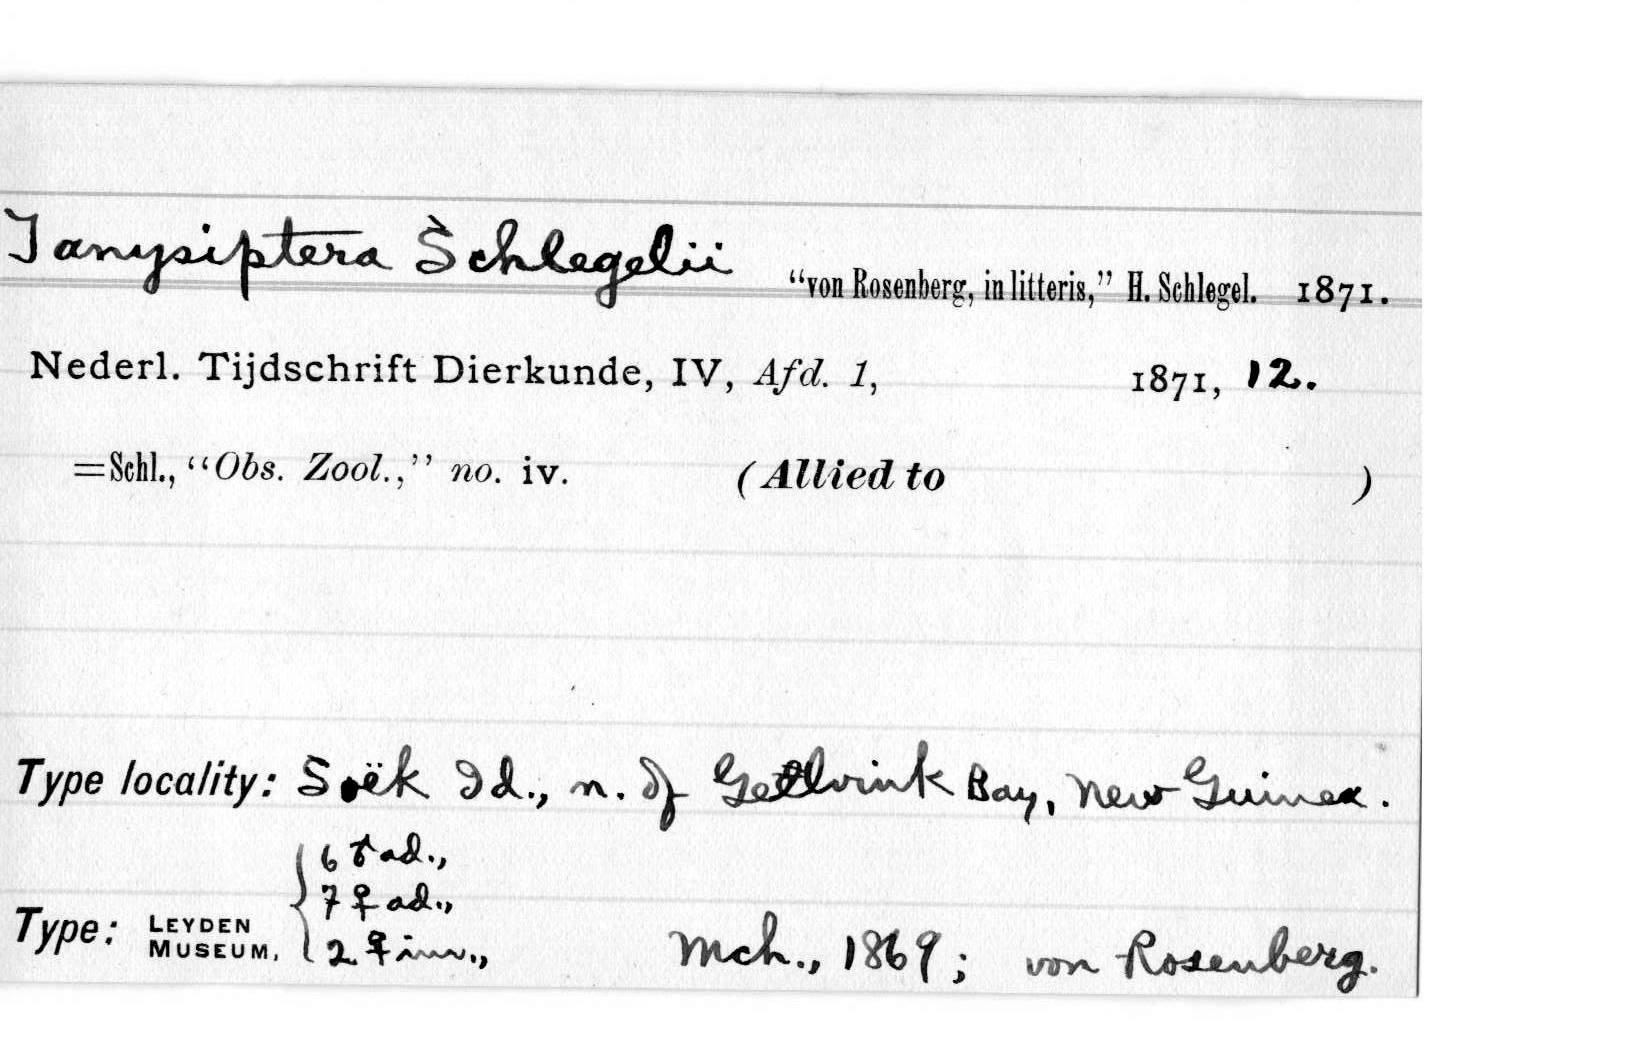 Tanysiptera Schlegelii “von Rosenberg, in litteris,” H. Schlegel. 1871.
Nederl. Tijdschrift Dierkunde, IV, Afd. 1, 1871, 12.
=Schl., “Obs. Zool.,” no. iv. (Allied to )
Type locality: Soëk Id., n. of Geelvink Bay, New Guinea.
6 ♂ ad.,
7 ♀ ad.,
Type: LEYDEN MUSEUM, 2 ♀ imm., Mch., 1869; von Rosenberg.